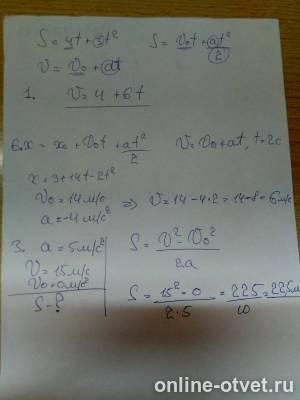 S = 4t + 3t²
S = v₀t + at²/2
v = v₀ + at
1. v = 4 + 6t
6. x = x₀ + v₀t + at²/2
v = v₀ + at, t = 2c
x = 3 + 14t - 2t²
v₀ = 14 м/с
a = -4 м/с² ⇒ v = 14 - 4·2 = 14 - 8 = 6 м/с
3. a = 5 м/с²
S = v² - v₀²/2a
v = 15 м/с
v₀ = 0 м/с²
S - ?
S = 15² - 0/2·5 = 225/10 = 22,5м
online-otvet.ru